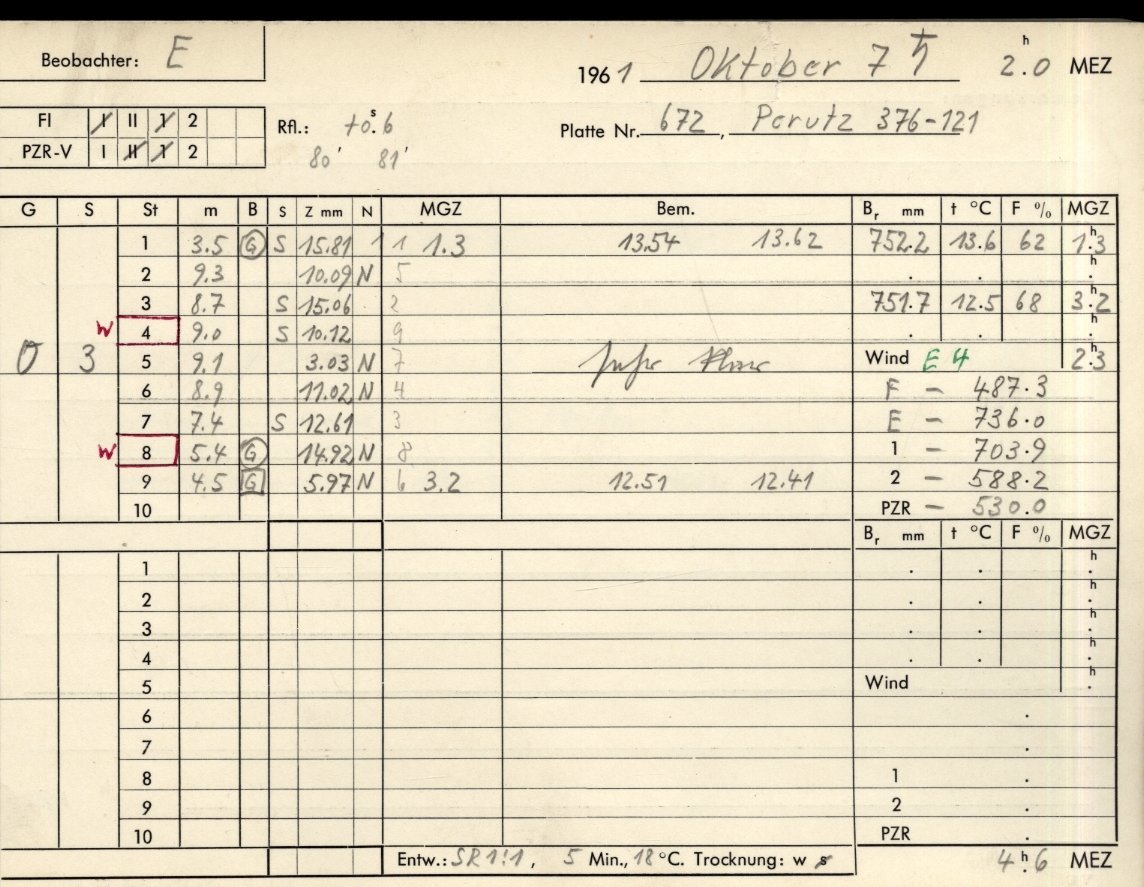 Beobachter: E
1961 Oktober 7 ♄ 2ʰ.0 MEZ
FI I II 1 2
PZR-V I II 1 2
Rfl.: +0ˢ.6
80' 81'
Platte Nr. 672, Perutz 376-121
G S St m B S Z mm N MGZ Bem. Bᵣ mm t °C F % MGZ
1 3.5 G S 15.81 1 1 1.3 13.54 13.62 752.2 13.6 62 1ʰ.3
2 9.3 10.09 N 5 . . ʰ.
3 8.7 S 15.06 2 751.7 12.5 68 3ʰ.2
W 4 9.0 S 10.12 9 . . ʰ.
0 3 5 9.1 3.03 N 7 Wind E 4 2ʰ.3
6 8.9 11.02 N 4 F - 487.3
7 7.4 S 12.61 3 E - 736.0
W 8 5.4 G 14.92 N 8 1 - 703.9
9 4.5 G 5.97 N 6 3.2 12.51 12.41 2 - 588.2
10 PZR - 530.0
Bᵣ mm t °C F % MGZ
1 . . ʰ.
2 . . ʰ.
3 . . ʰ.
4 . . ʰ.
5 Wind ʰ.
6 .
7 .
8 1 .
9 2 .
10 PZR .
Entw.: SR 1:1, 5 Min., 18 °C. Trocknung: w s
4ʰ.6 MEZ